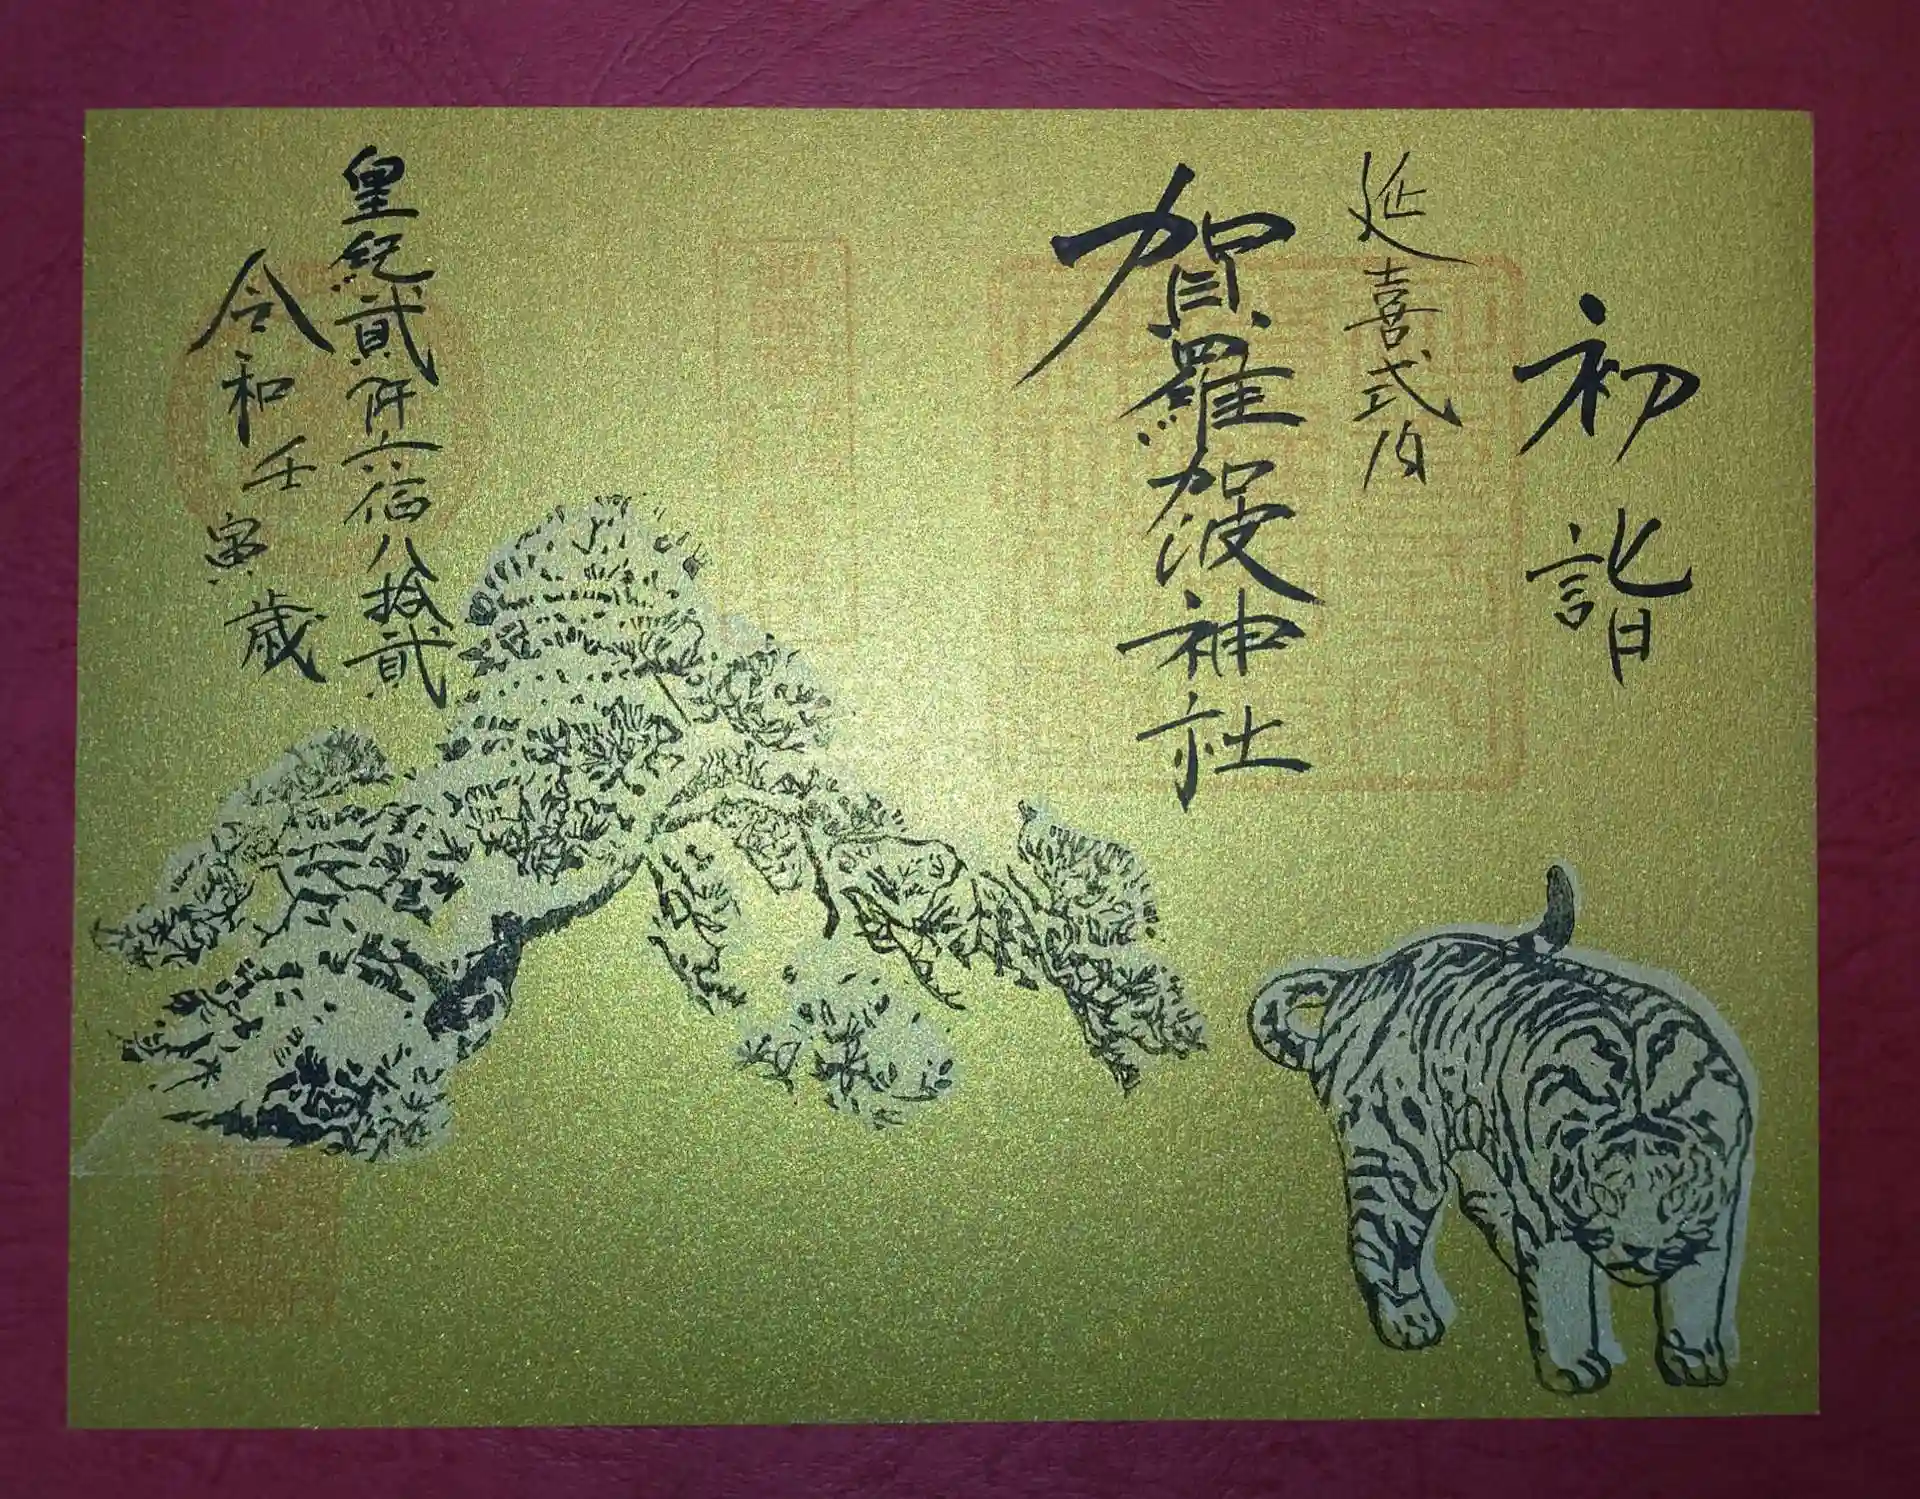 初詣
延喜式内
賀羅加波神社
皇紀貳阡六佰八拾貳
令和壬寅歳